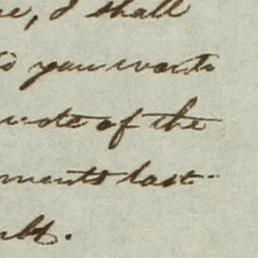 , I shall
you wants
note of the
ments last